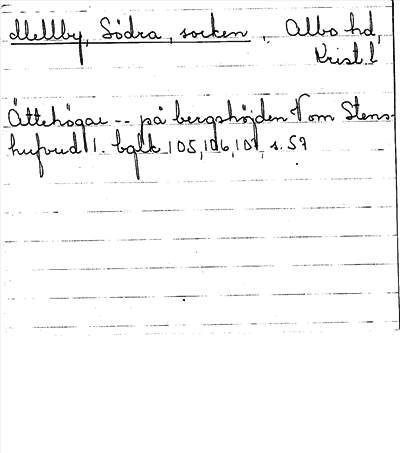 Mellby, Södra, socken, Albo hd,
Krist. l
Ättehögar -- på bergshöjden V om Stens-
hufvud 1. bglk 105, 106, 107, s. 59